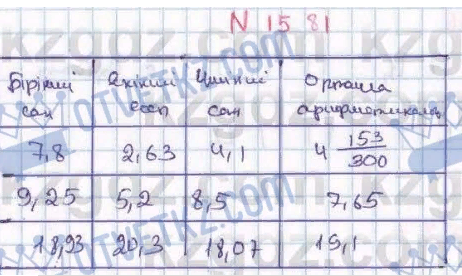 N 1581
Бірінші сан Екінші есеп Үшінші сан Орташа арифметикалық
7,8 2,63 4,1 4 153/300
9,25 5,2 8,5 7,65
18,93 20,3 18,07 19,1